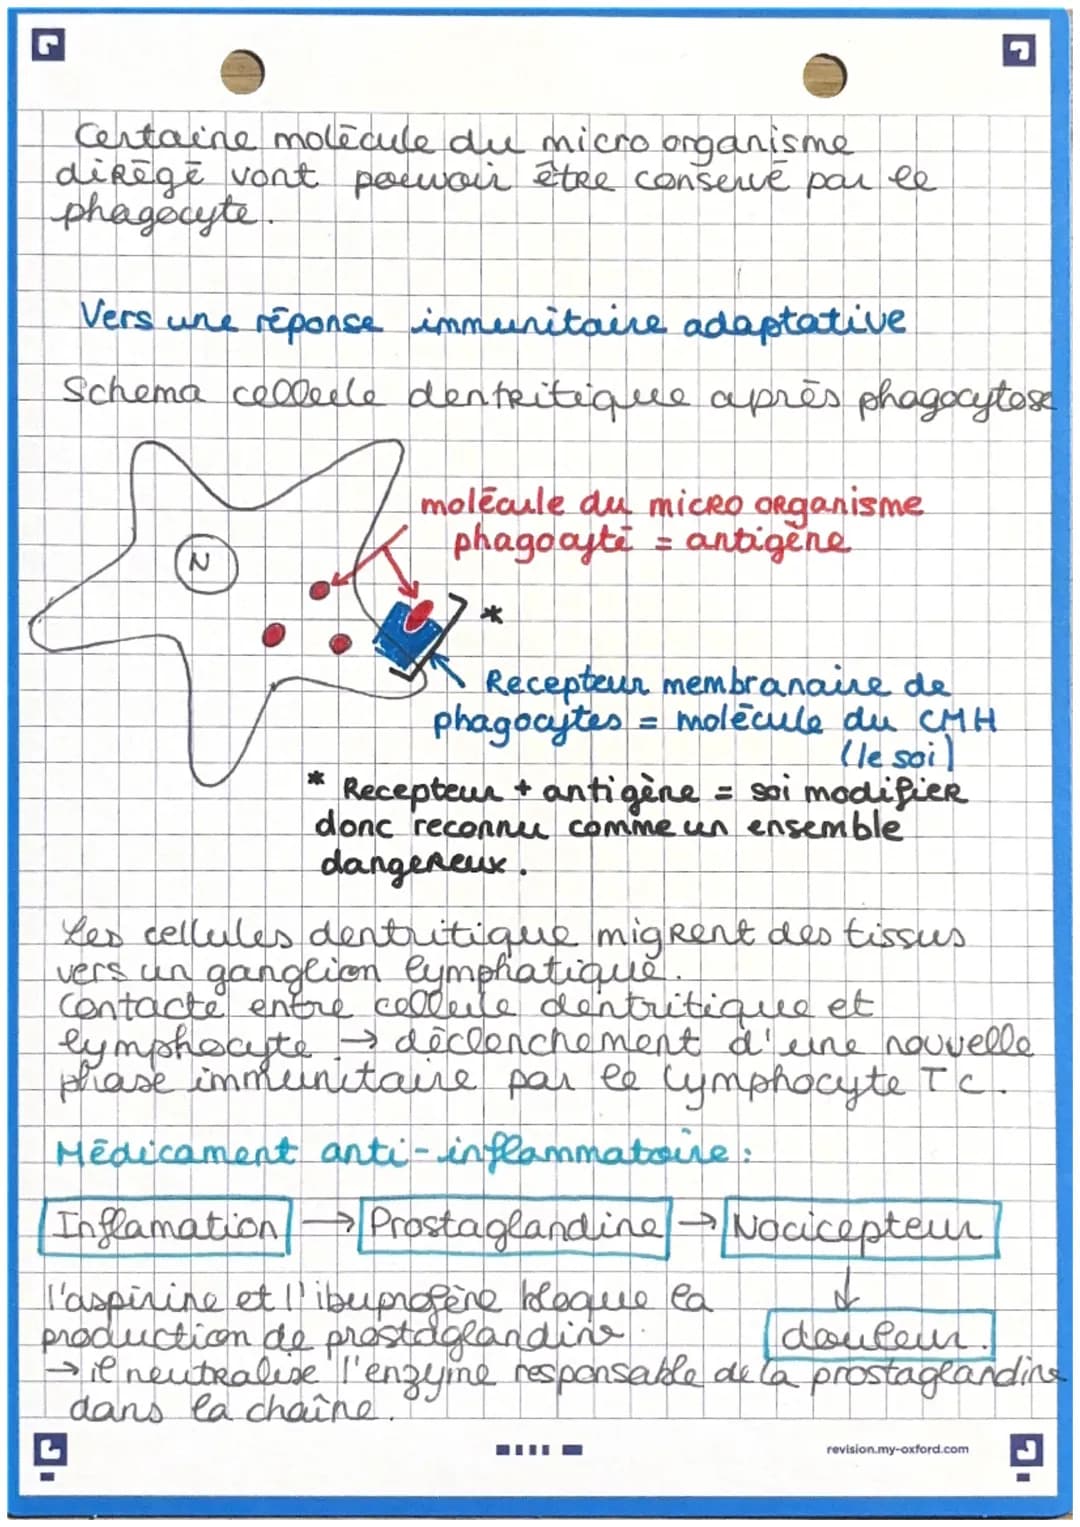 Certaine molécule du micro organisme
dirēgē vont pouvoir être conservé par le
phagocyte.
Vers une réponse immunitaire adaptative
Schema cellule dentritique après phagocytose
N
molécule du micro organisme
phagocyté = antigène
*
Recepteur membranaire de
phagocytes = molécule du CMH
(le soi)
* Recepteur + antigène = soi modifier
donc reconnu comme un ensemble
dangereux.
Les cellules dentritique migrent des tissus
vers un ganglion lymphatique.
Contacte entre cellule dentritique et
lymphocyte → déclenchement d'une nouvelle
phase immunitaire par le lymphocyte TC.
Médicament anti-inflammatoire :
Inflamation → Prostaglandine → Nocicepteur
l'aspirine et l'ibuprofène bloque la
production de prostaglandine.
douleur.
→ il neutralise l'enzyme responsable de la prostaglandine
dans la chaîne.
revision.my-oxford.com